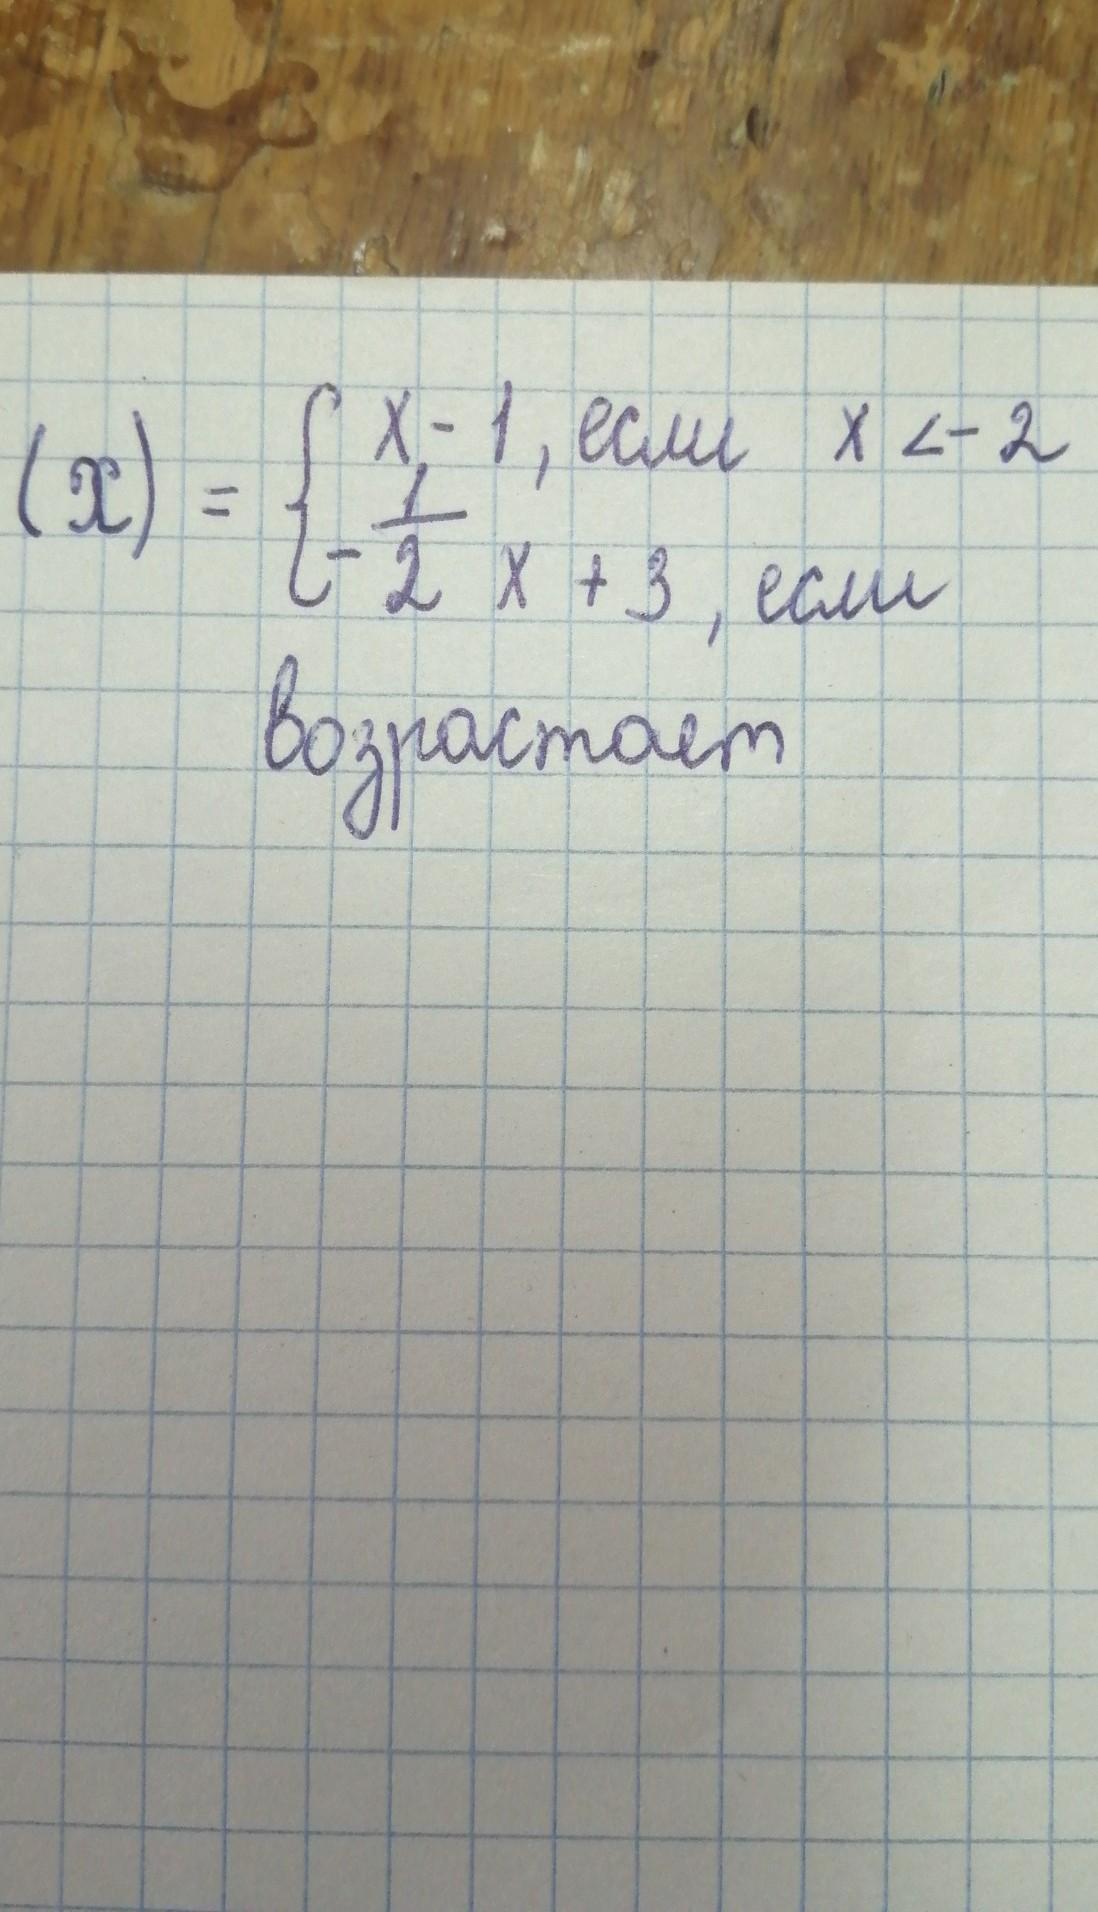 (x) = { x - 1, если x < - 2
- 1/2 x + 3, если
возрастает